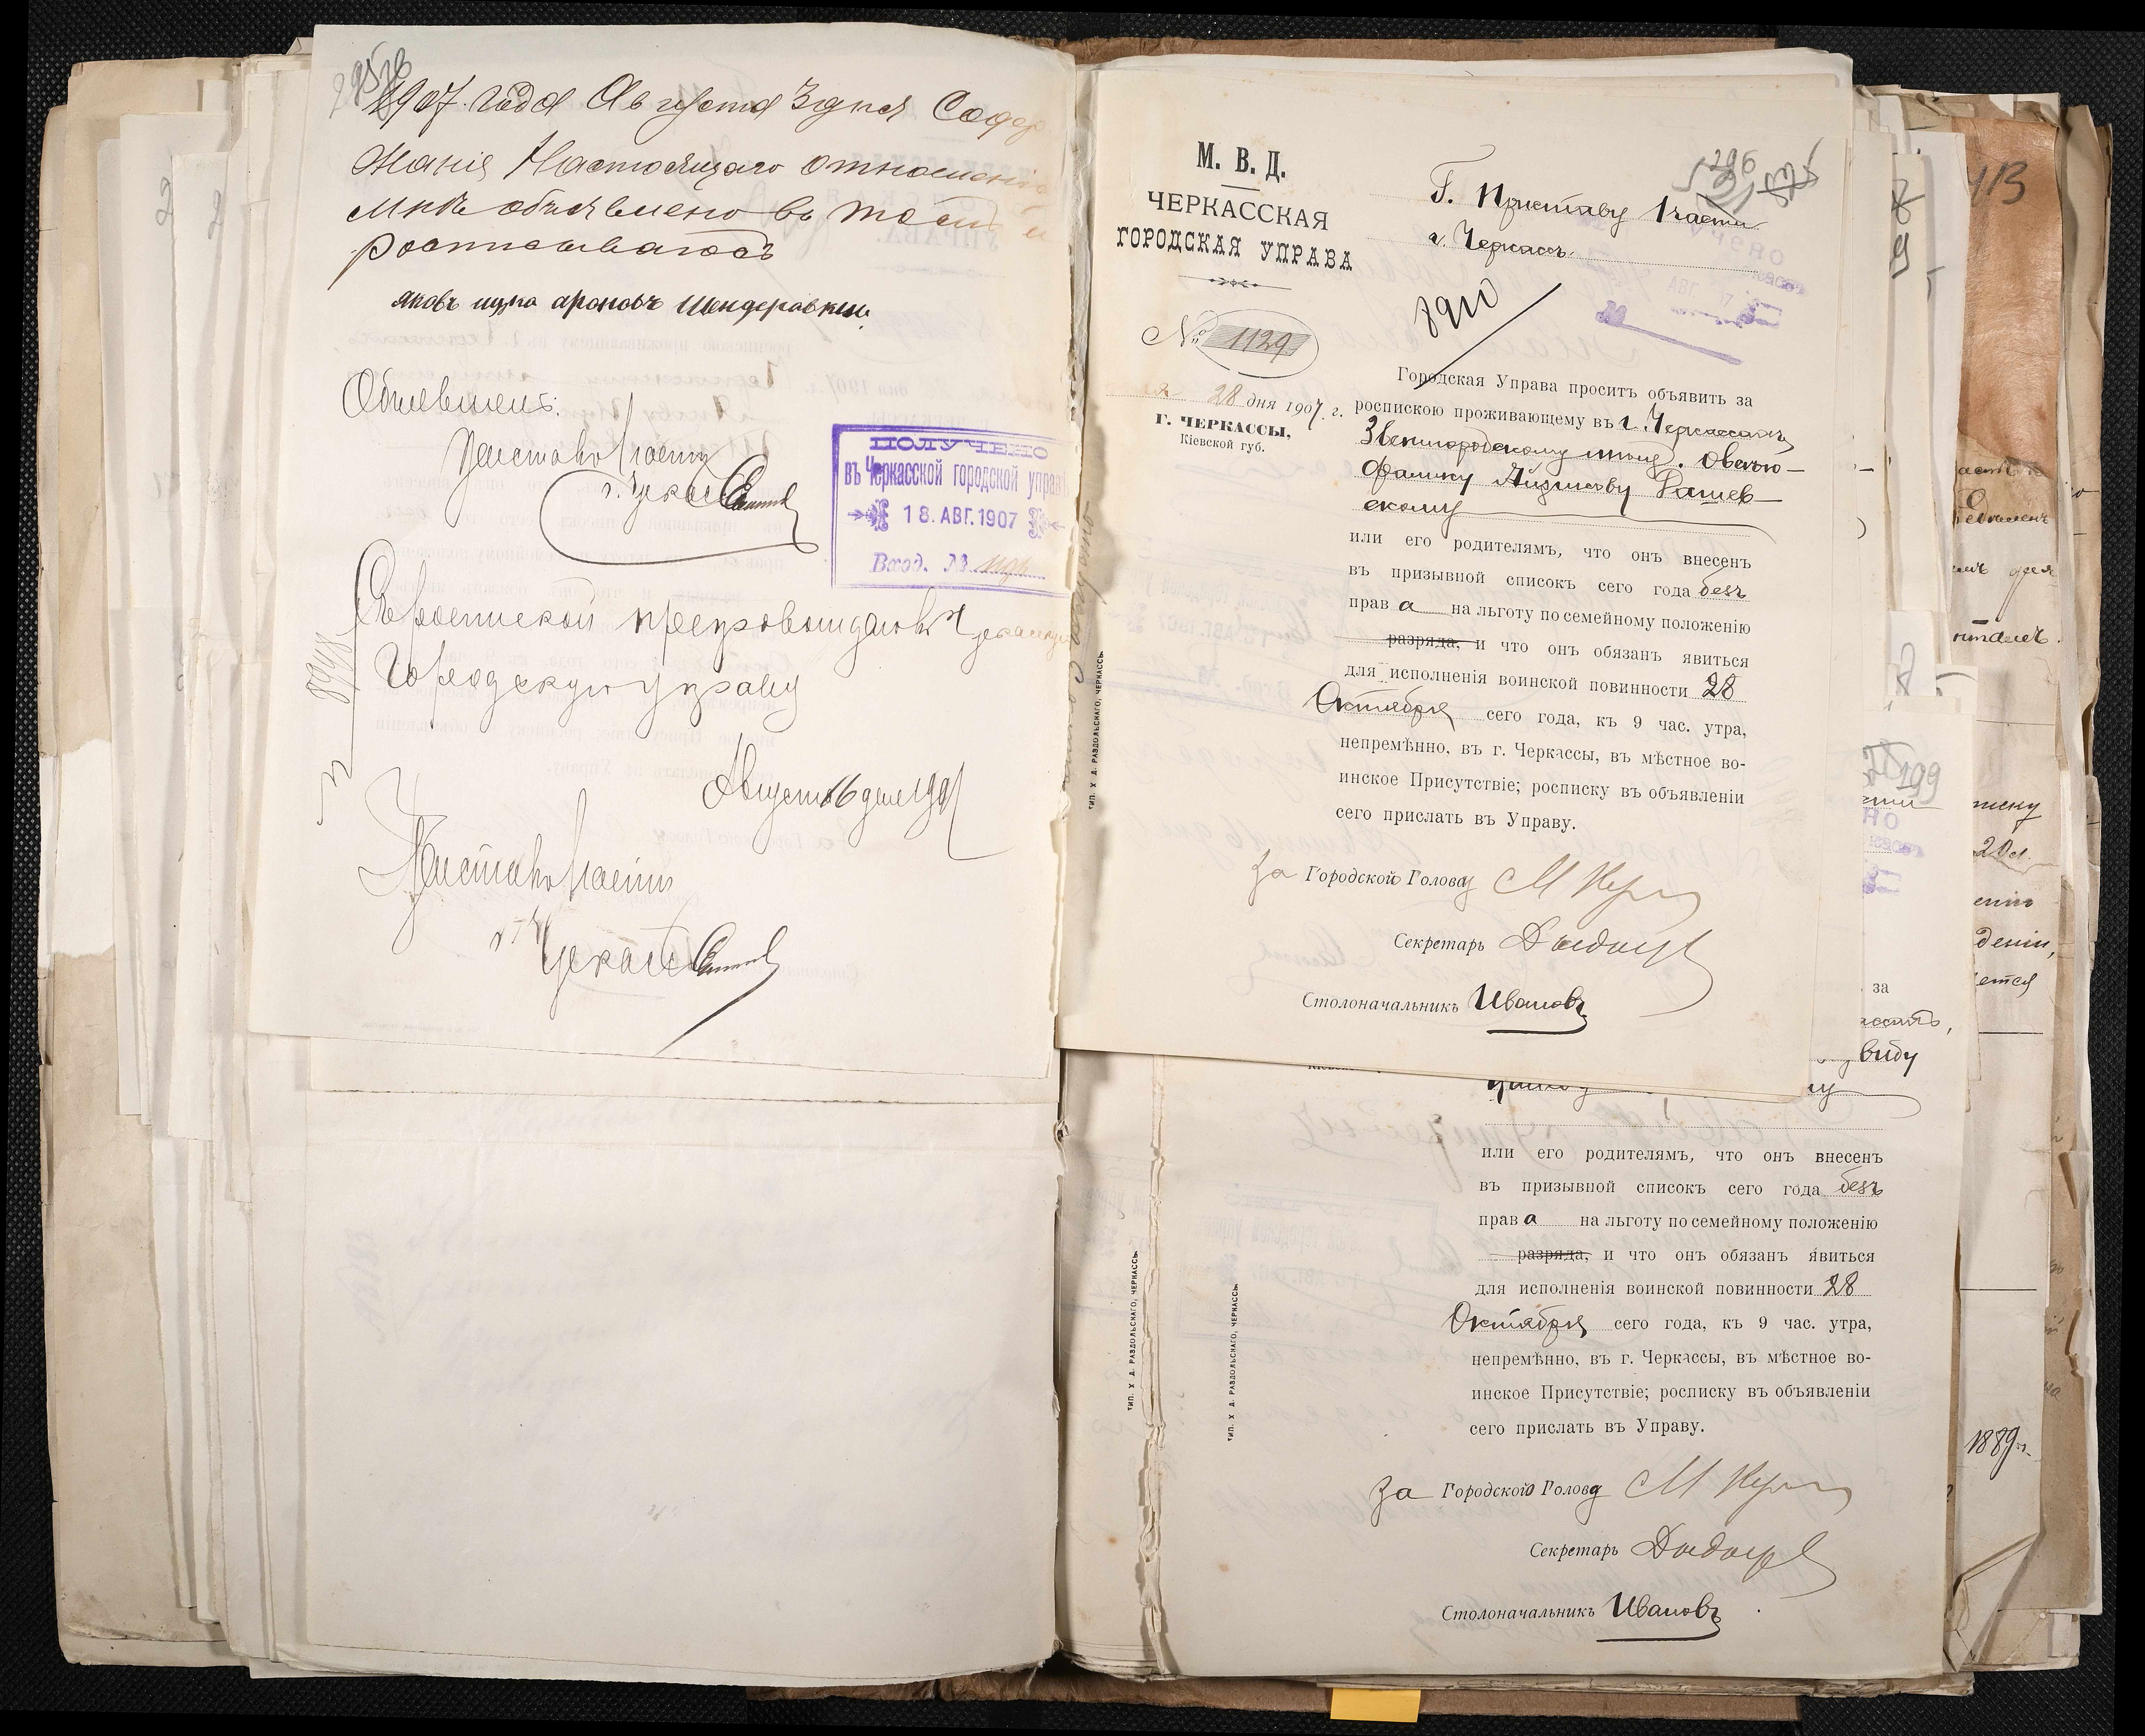 1907. года Августа 3 дня Содер
жанія Настоящаго отношенія
мнѣ объявлено въ томъ и
росписываюсь
яковъ ицко ароновъ Шендеровкин
Объявилъ:
Приставъ 1 части
г. Черкассъ
ПОЛУЧЕНО
въ Черкасской городской управѣ
18. АВГ. 1907
Вход. №
Съ роспиской препровождается въ Черкасскую
Городскую управу
Августа 16 дня 1907
Приставъ 1 части
г. Черкассъ
М. В. Д.
ЧЕРКАССКАЯ
ГОРОДСКАЯ УПРАВА
№ 1129
28 дня 1907 г.
Г. ЧЕРКАССЫ,
Кіевской губ.
296
Г. Приставу 1 части
г. Черкассъ.
8920
АВГ.
Городская Управа проситъ объявить за
роспискою проживающему въ г. Черкассахъ
Звенигородскому мѣщ. Овсею-
Фалику Айзикову Рашев-
скому
или его родителямъ, что онъ внесенъ
въ призывной списокъ сего года безъ
права на льготу по семейному положенію
разряда, и что онъ обязанъ явиться
для исполненія воинской повинности 28
Октября сего года, къ 9 час. утра,
непремѣнно, въ г. Черкассы, въ мѣстное во-
инское Присутствіе; росписку въ объявленіи
сего прислать въ Управу.
За Городской Голову
Секретарь
Столоначальникъ Ивановъ
ТИП. Х Д. РАЗДОЛЬСКАГО, ЧЕРКАССЫ.
или его родителямъ, что онъ внесенъ
въ призывной списокъ сего года безъ
права на льготу по семейному положенію
разряда, и что онъ обязанъ явиться
для исполненія воинской повинности 28
Октября сего года, къ 9 час. утра,
непремѣнно, въ г. Черкассы, въ мѣстное во-
инское Присутствіе; росписку въ объявленіи
сего прислать въ Управу.
За Городского Голову
Секретарь
Столоначальникъ Ивановъ
ТИП. Х Д. РАЗДОЛЬСКАГО, ЧЕРКАССЫ.
ТИП. Х Д. РАЗДОЛЬСКАГО, ЧЕРКАССЫ.
413
199
за
виду
1889 г.